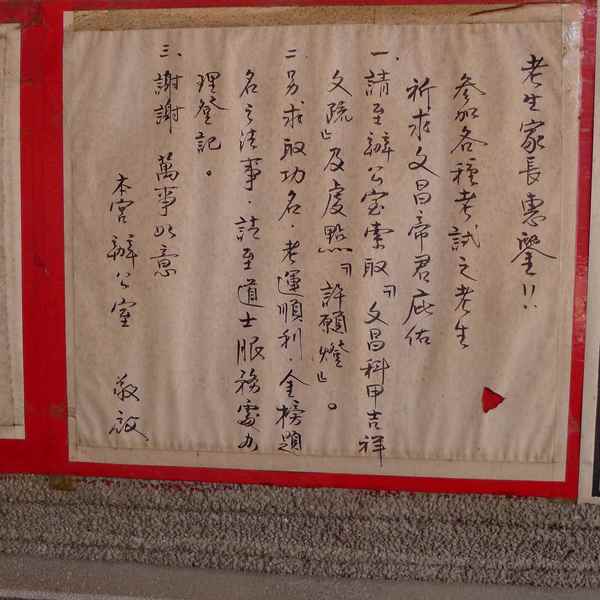 考生家長惠鑒!!
參加各種考試之考生
祈求文昌帝君庇佑
一、請至辦公室索取『文昌科甲吉祥
文疏』及處點『許願燈』。
二、另求取功名.考運順利.金榜題
名之法事.請至道士服務處办
理登記。
三、謝謝 萬事如意
本宮辦公室 敬啟